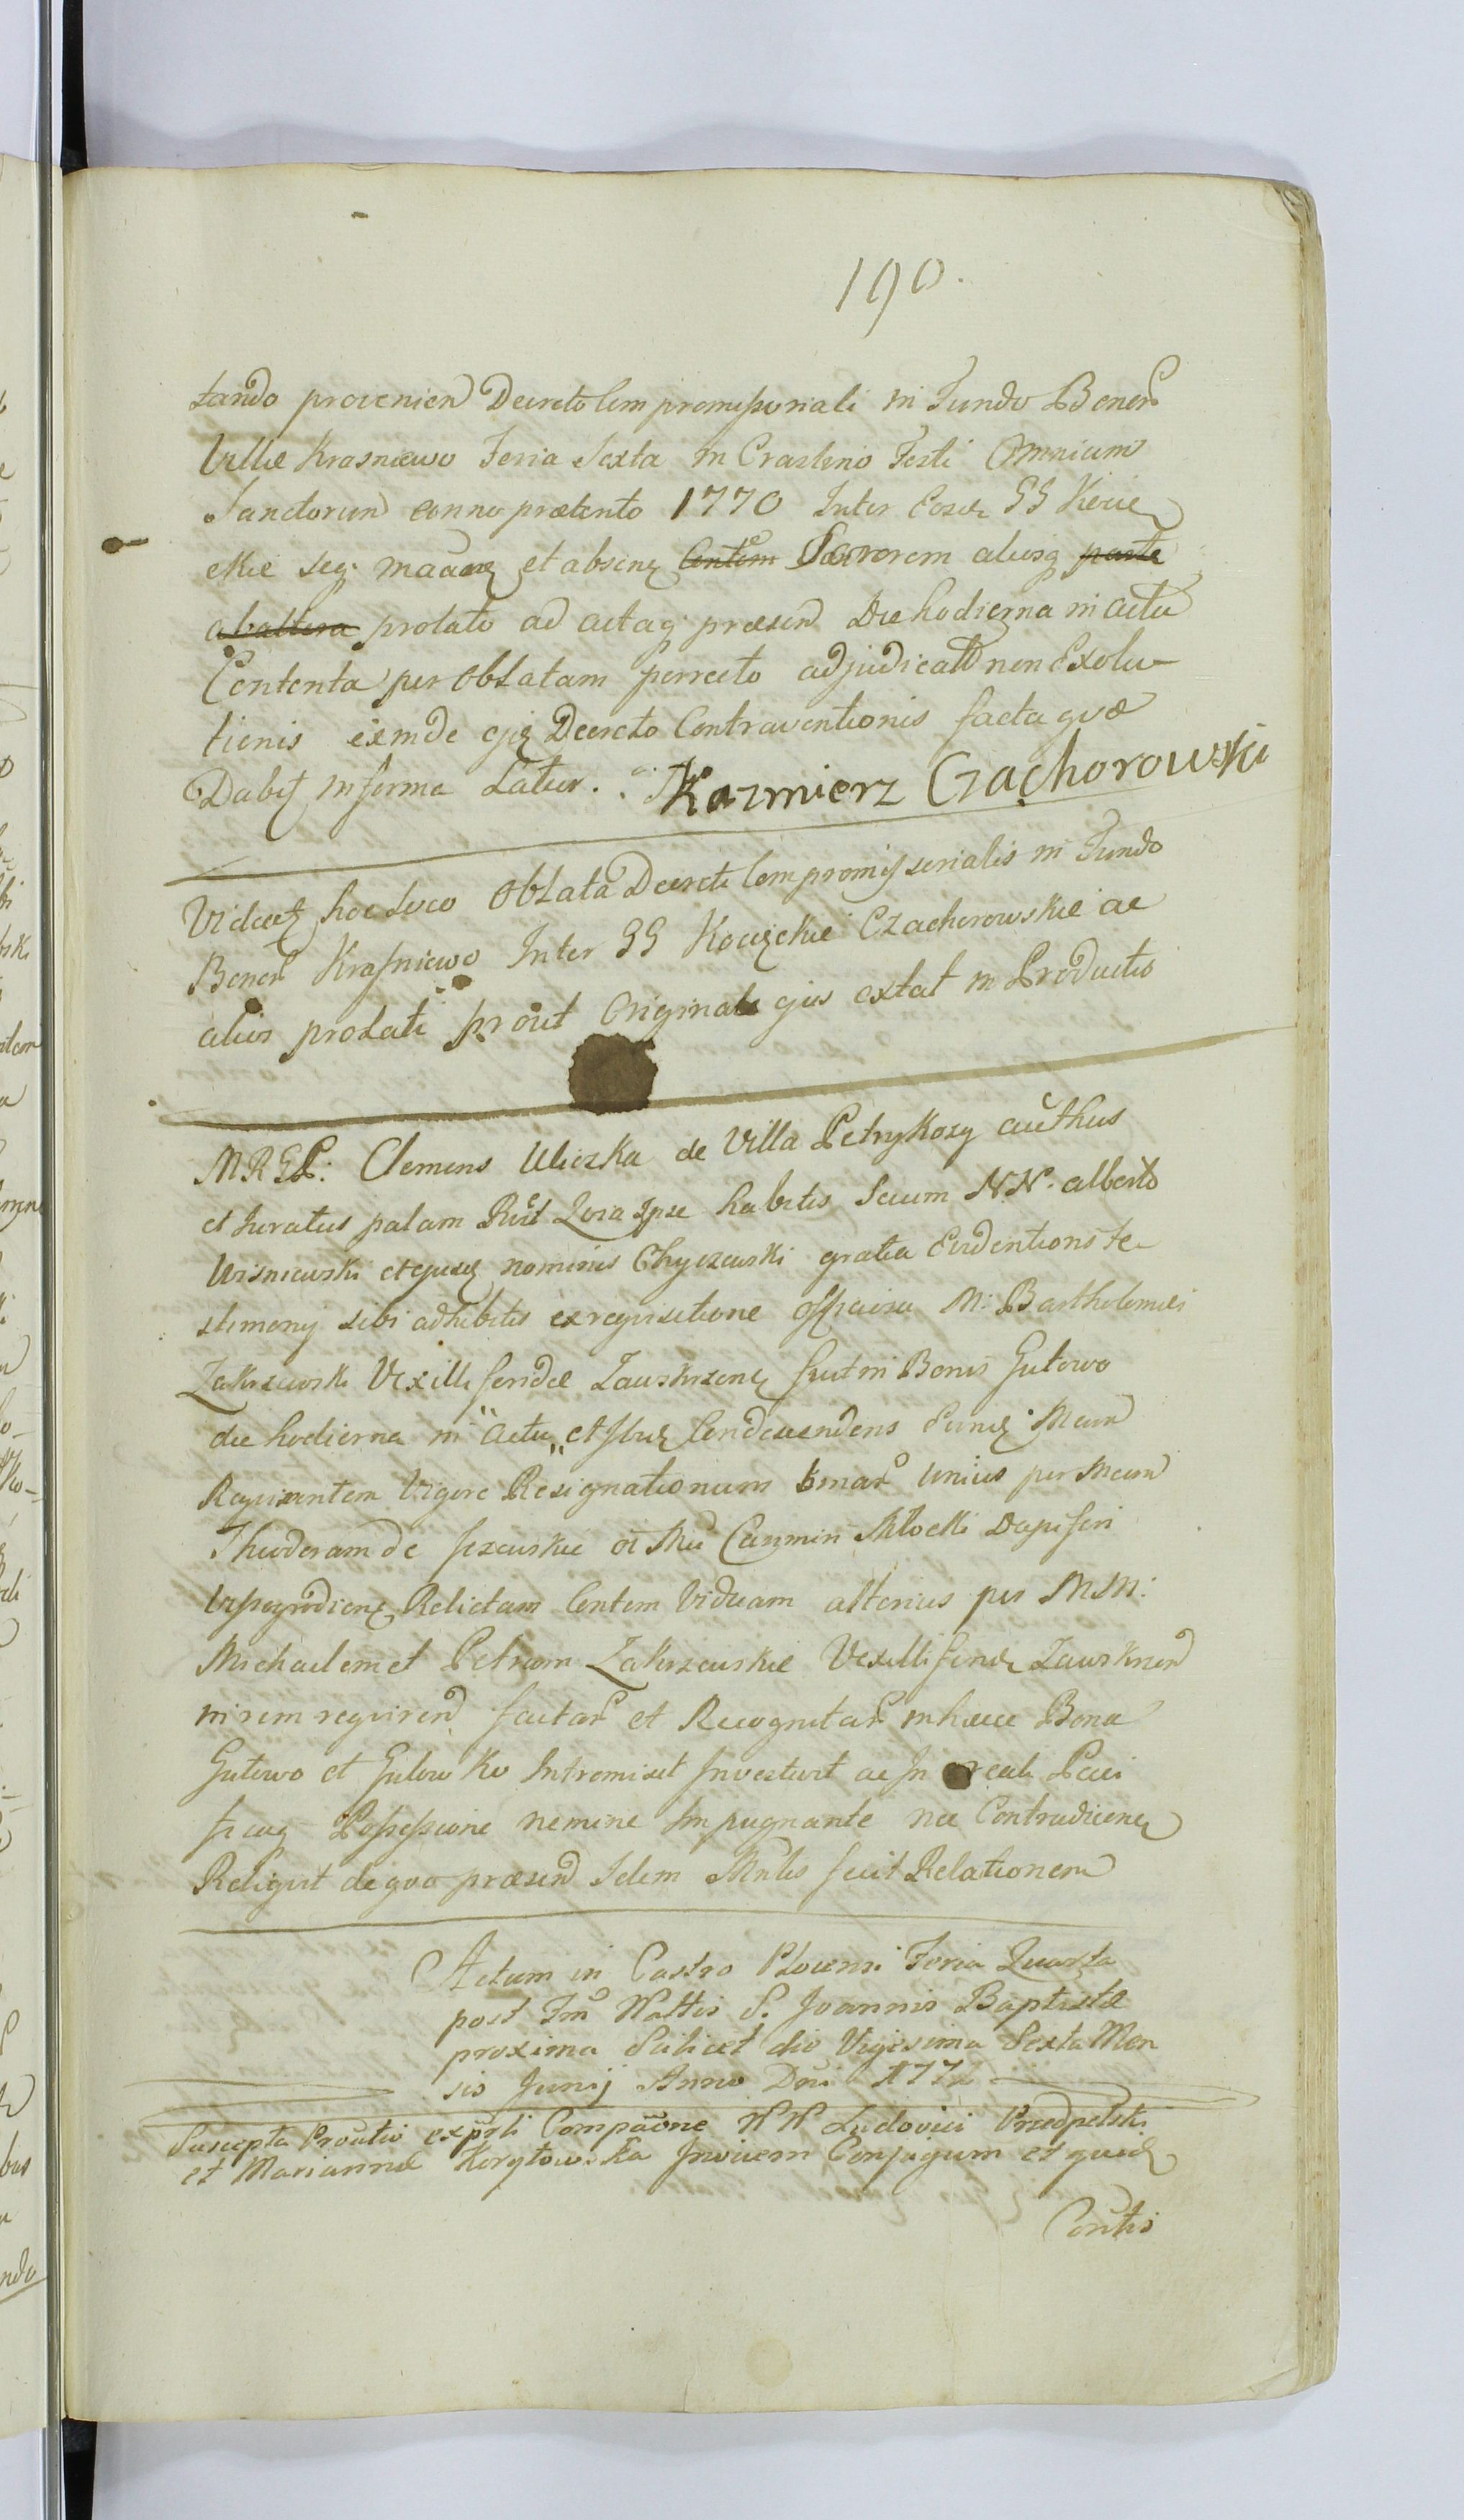 190.
tando provenien Decreto Compromissoriali in Fundo Bonor
Villae Krasniewo Feria Sexta in Crastino Festi Omnium
Sanctorum anno praetento 1770 Inter Eosd GG
ckie seq et absinq Contem Sororem aliosq parte
ab altera prolato ad actaq praesen Die hodierna in actu
Contenta per Oblatam porrecto adjudicat non Exolu-
tionis exinde ejq Decreto Contraventionis facta quae
Dabit in forma Latur. Kazmierz Czachorowski
Videat hoc Loco Oblata Decreti Compromissorialis in Fundo
Bonor Krasniewo Inter GG Kowęckie Czachorowskie ac
alios prolati prout Originale ejus extat in Productis
MRGP: Clemens Uliczka de Villa Petrykozy authus
et Juratus palam Quia Ipse habitis Secum NN. alberto
Wisniewski et ejusd nominis Chyczewski gratia Evidentionis te-
stimonij sibi adhibitis ex requisitione officiosa M: Bartholomei
Zakrzewski Vexilliferidae Zawskrzen fuit in Bonis Gutowo
die hodierna in "Actu" et Condescendens Eund Meum
Requirentem Vigore Resignationum binar unius per Meam
Theodoram de olim Casimiri Mlocki Dapiferi
Wyszogrodien Relictam Contem Viduam alterius per MM:
Michaelem et Petrum Zakrzewskie Vexilliferid Zawskrzen
in rem requiren factar et Recognitar in haece Bona
Gutowo et Gutowko Intromisit Investivit ac In reali Paci
ficaq Possessione nemine Impugnante nec Contradicenq
Reliquit de quo praesen Idem Mnlis fecit Relationem
Actum in Castro Plocensi Feria Quarta
post Fm Nattis S. Joannis Baptistae
proxima Scilicet die Vigesima Sexta Men
sis Junij Anno Dni 177
Suscepta Proutio exprli Compaone NN Ludovici Przedpelski
et Mariannae Korytowska Invicem Conjugum et quid
Contis